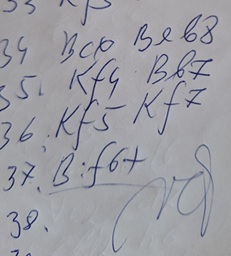 33 Kf5
34 Bc6 Beb8
35. Kf4 Bb7
36. Kf5 Kf7
37. B:f6+
38.